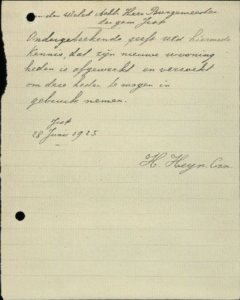 Aan den WelEd. Achtb. Heer Burgemeester
der gem. Jost
Ondergeteekende geeft UEd hiermede
kennis, dat zijn nieuwe woning
heden is afgewerkt en verzoekt
om deze heden te mogen in
gebruik nemen.
28 Juni 1923
H. Heyn.